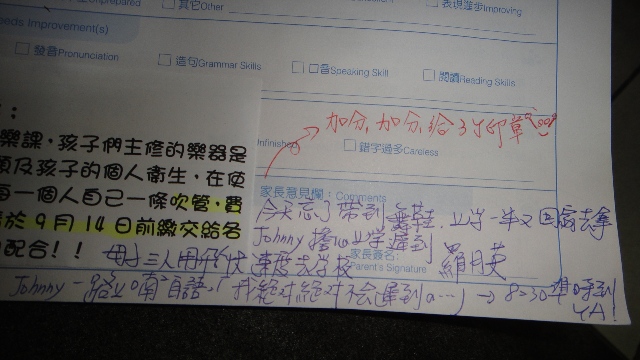 Unprepared □其它Other □表現進步Improving
eeds Improvement(s)
□發音Pronunciation □造句Grammar Skills □口音Speaking Skill □閱讀Reading Skills
:
樂課,孩子們主修的樂器是
及孩子的個人衛生,在使
每一個人自己一條吹管,費
於9月14日前繳交給名
配合!!
加分,加分,給3
Infinished □錯字過多Careless
家長意見欄:Comments
今天忘了帶到舞鞋,上學一半又回家去拿
Johnny 擔心上學遲到
家長簽名:
Parent's Signature
羅月英
母子三人用 快速度去學校
Johnny 一路上喃喃自語,(我絕对絕对不会遲到a...) → 8:30 準時到
YA!